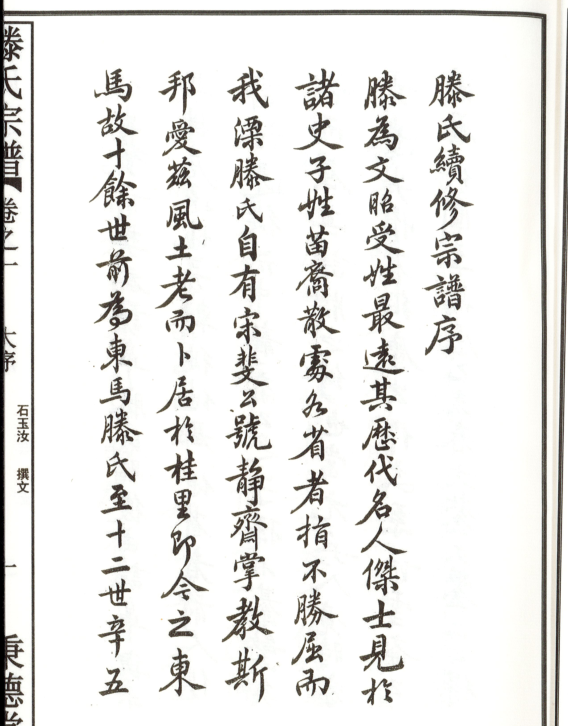 滕氏續修宗譜序
滕為文昭受姓最遠其歷代名人傑士見於
諸史子姓苗裔散處各省者指不勝屈而
我溧滕氏自有宋斐公號靜齋掌教斯
邦愛茲風土老而卜居於桂里即今之東
馬故十餘世前為東馬滕氏至十二世辛五
滕氏宗譜 卷之一 大序 石玉汝 撰文 一 秉德堂